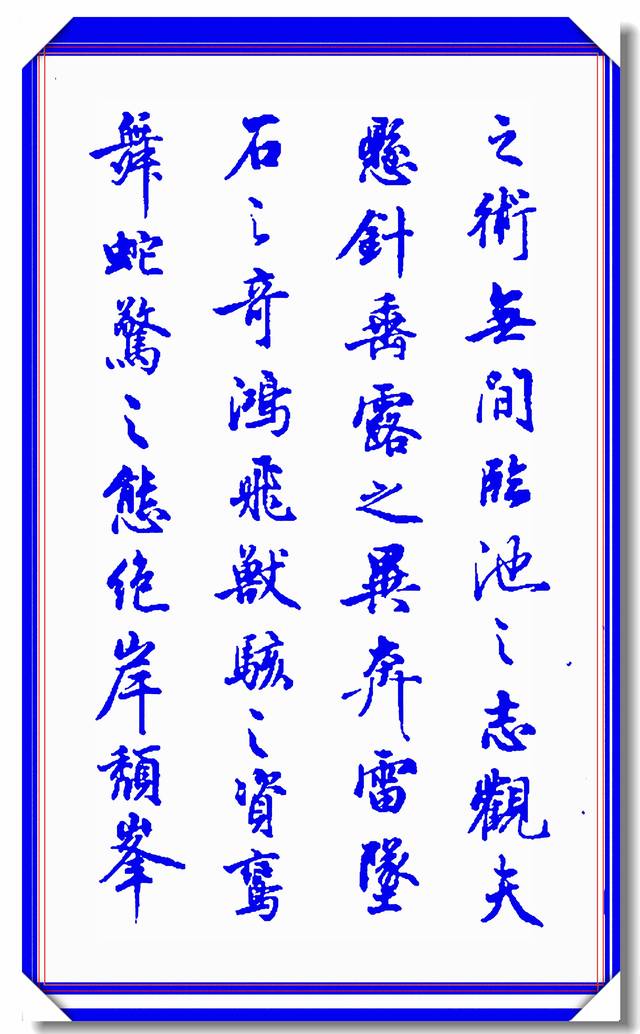 之術無間臨池之志觀夫
懸針垂露之異奔雷墜
石之奇鴻飛獸駭之資鸞
舞蛇驚之態絶岸頹峯